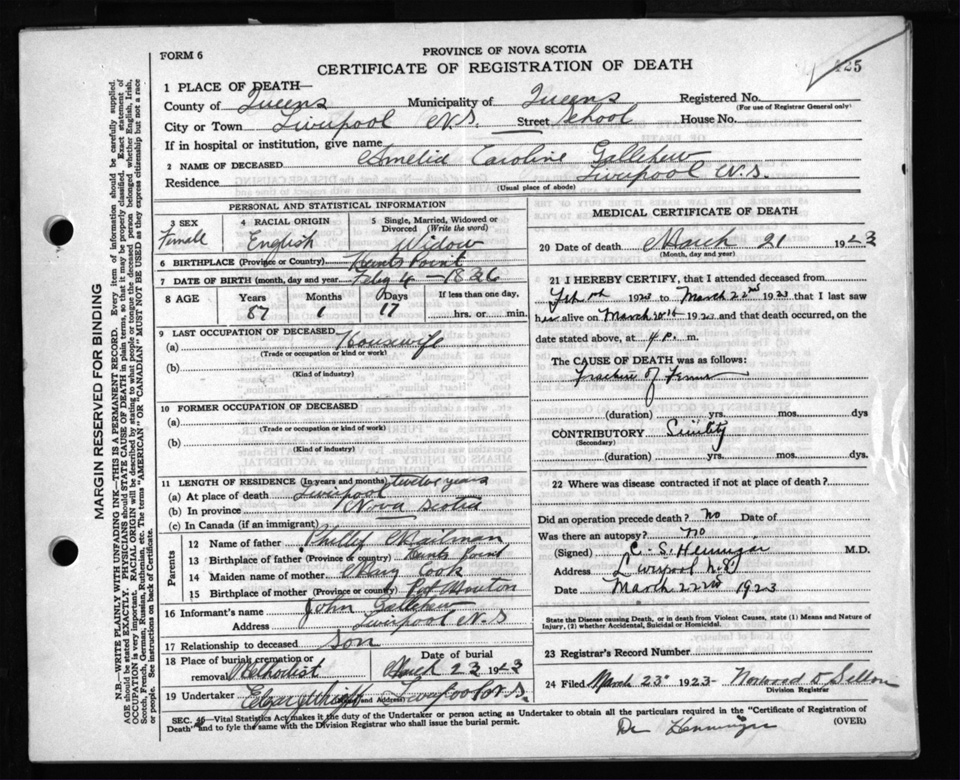 FORM 6
PROVINCE OF NOVA SCOTIA
CERTIFICATE OF REGISTRATION OF DEATH
425
1 PLACE OF DEATH—
County of Queens Municipality of Queens Registered No.
(For use of Registrar General only)
City or Town Liverpool N.S. Street School House No.
If in hospital or institution, give name
2 NAME OF DECEASED Amelia Caroline Gallihew
Residence Liverpool N.S.
(Usual place of abode)
PERSONAL AND STATISTICAL INFORMATION
3 SEX Female
4 RACIAL ORIGIN English
5 Single, Married, Widowed or Divorced (Write the word) Widow
6 BIRTHPLACE (Province or Country) Hunts Point
7 DATE OF BIRTH (month, day and year
8 AGE
Years Months Days If less than one day,
87 1 17 hrs. or min.
9 LAST OCCUPATION OF DECEASED
(a) Housewife
(Trade or occupation or kind or work)
(b)
(Kind of industry)
10 FORMER OCCUPATION OF DECEASED
(a)
(Trade or occupation or kind of work)
(b)
(Kind of industry)
11 LENGTH OF RESIDENCE (In years and months) twelve years
(a) At place of death Liverpool
(b) In province Nova Scotia
(c) In Canada (if an immigrant)
Parents
12 Name of father Phillip Mailman
13 Birthplace of father (Province or country) Hunts Point
14 Maiden name of mother Mary Cook
15 Birthplace of mother (Province or country) Port Mouton
16 Informant's name John Gallihew
Address Liverpool N.S
17 Relationship to deceased Son
18 Place of burial, cremation or removal Methodist
Date of burial March 23 1923
19 Undertaker (Name and Address) Liverpool N.S.
MEDICAL CERTIFICATE OF DEATH
20 Date of death March 21 1923
(Month, day and year)
21 I HEREBY CERTIFY, that I attended deceased from
1923 to March 22nd 1923 that I last saw
her alive on March 1923 and that death occurred, on the
date stated above, at 4 p. m.
The CAUSE OF DEATH was as follows:
Fracture of Femur
(duration) yrs. mos. dys
CONTRIBUTORY Senility
(Secondary)
(duration) yrs. mos. dys.
22 Where was disease contracted if not at place of death?
Did an operation precede death? No Date of
Was there an autopsy? no
(Signed) C. S. Hennigar M.D.
Address Liverpool N.S.
Date March 22nd 1923
State the Disease causing Death, or in death from Violent Causes, state (1) Means and Nature
of Injury, (2) whether Accidental, Suicidal or Homicidal.
23 Registrar's Record Number
24 Filed March 23rd 1923
Division Registrar
SEC. 45—Vital Statistics Act makes it the duty of the Undertaker or person acting as Undertaker to obtain all the particulars required in the "Certificate of Registration of
Death" and to fyle the same with the Division Registrar who shall issue the burial permit.
(OVER)
Dr Henniger
MARGIN RESERVED FOR BINDING
N.B.—WRITE PLAINLY WITH UNFADING INK—THIS IS A PERMANENT RECORD. Every item of information should be carefully supplied.
AGE should be stated EXACTLY. PHYSICIANS should STATE CAUSE OF DEATH in plain terms, so that it may be properly classified. Exact statement of
OCCUPATION is very important. RACIAL ORIGIN will be described by stating to what people or tongue the deceased person belonged, whether English, Irish,
Scotch, French, German, Russian, Ruthenian, etc. The terms "AMERICAN" OR "CANADIAN" MUST NOT BE USED as they express citizenship but not a race
or people. See instructions on back of Certificate.